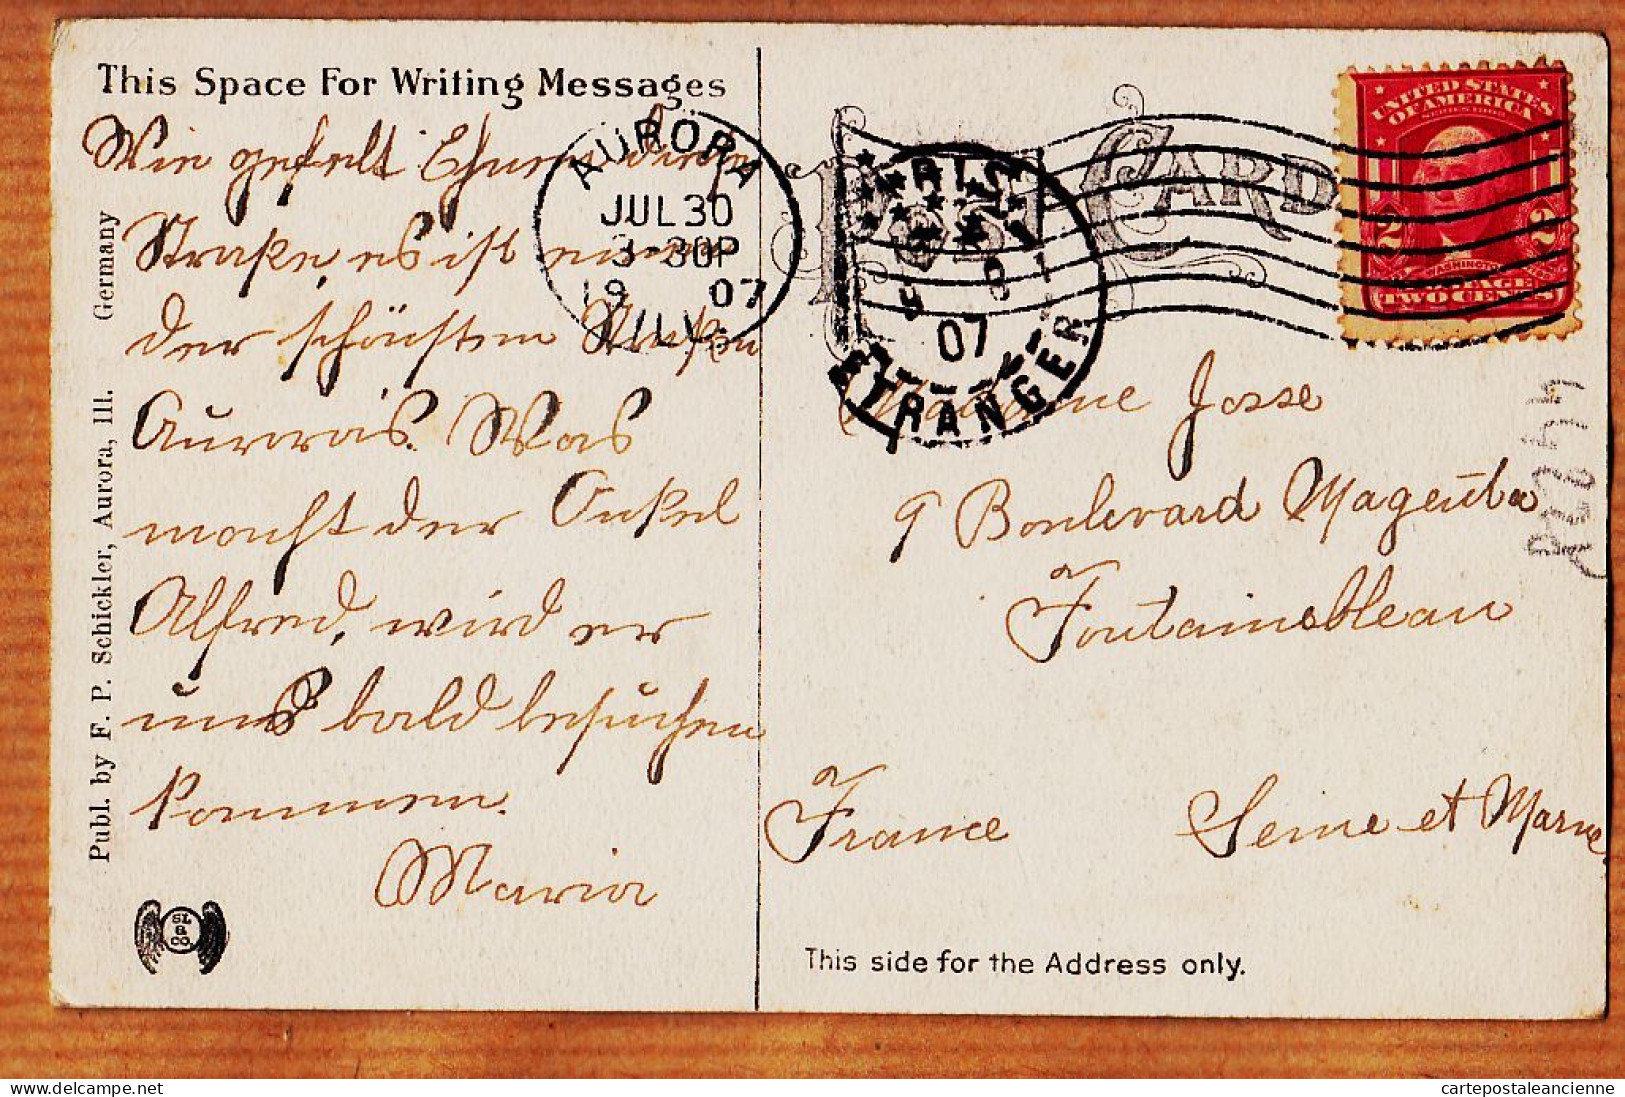 This Space For Writing Messages
Wie gefällt Ihnen diese
Straße, es ist eine
der schönsten Straßen
Auroras. Was
macht der Onkel
Alfred, wird er
uns bald besuchen
kommen.
Maria
Publ. by F. P. Schickler, Aurora, Ill. Germany
SL & CO.
AURORA
JUL 30
3-30P
19 07
ILL.
PARIS
07
ETRANGER
POST CARD
UNITED STATES
OF AMERICA
SERIES 1902
2 2
WASHINGTON
POSTAGE
TWO CENTS
Madame Josse
9 Boulevard Magenta
Fontainebleau
France Seine et Marne
This side for the Address only.
cartepostaleancienne